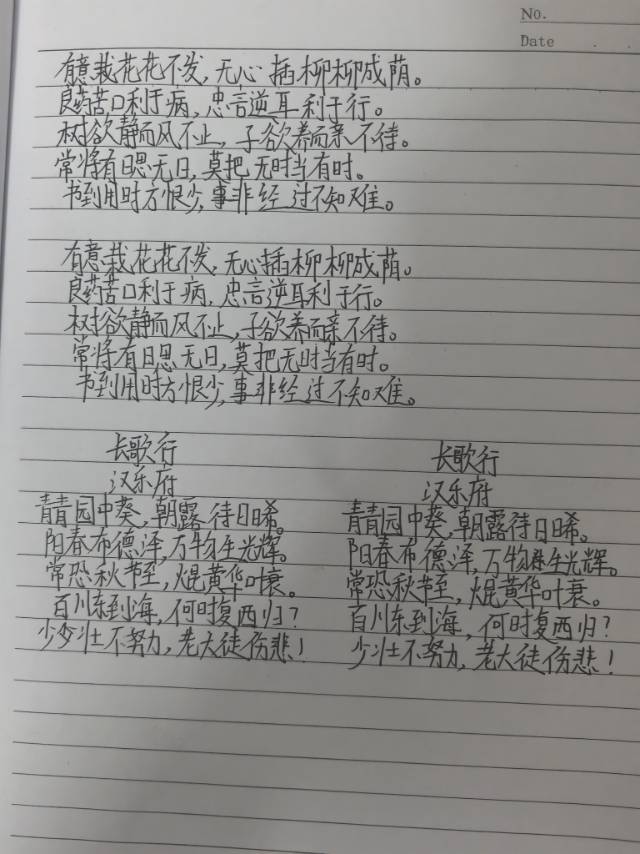 No.
Date
有意栽花花不发,无心插柳柳成荫。
良药苦口利于病,忠言逆耳利于行。
树欲静而风不止,子欲养而亲不待。
常将有日思无日,莫把无时当有时。
书到用时方恨少,事非经过不知难。
有意栽花花不发,无心插柳柳成荫。
良药苦口利于病,忠言逆耳利于行。
树欲静而风不止,子欲养而亲不待。
常将有日思无日,莫把无时当有时。
书到用时方恨少,事非经过不知难。
长歌行
汉乐府
青青园中葵,朝露待日晞。
阳春布德泽,万物生光辉。
常恐秋节至,焜黄华叶衰。
百川东到海,何时复西归?
少壮不努力,老大徒伤悲!
长歌行
汉乐府
青青园中葵,朝露待日晞。
阳春布德泽,万物生光辉。
常恐秋节至,焜黄华叶衰。
百川东到海,何时复西归?
少壮不努力,老大徒伤悲!